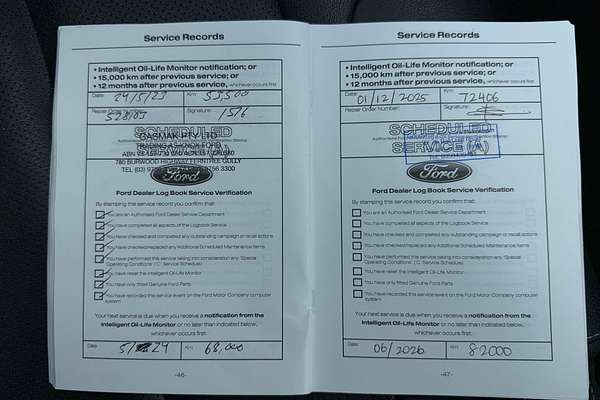 Service Records
• Intelligent Oil-Life Monitor notification; or
• 15,000 km after previous service; or
• 12 months after previous service, whichever occurs first
Date: 24/5/23 Km:
Repair Order Signature:
SCHEDULED
GASMAK PTY LTD
780 BURWOOD HIGHWAY FERNTREE GULLY
Ford
Ford Dealer Log Book Service Verification
By stamping the service record you confirm that:
You are an Authorised Ford Dealer Service Department
You have completed all aspects of the Logbook Service
You have checked and completed any outstanding campaign or recall actions
You have checked/replaced any Additional Scheduled Maintenance items
You have performed this service taking into consideration any 'Special
Operating Conditions' ('C' Service Schedules)
You have reset the Intelligent Oil-Life Monitor
You have only fitted Genuine Ford Parts
You have recorded this service event on the Ford Motor Company computer
system
Your next service is due when you receive a notification from the
Intelligent Oil-Life Monitor or no later than indicated below,
whichever occurs first:
Date: 24 Km: 68,000
-46-
Service Records
• Intelligent Oil-Life Monitor notification; or
• 15,000 km after previous service; or
• 12 months after previous service, whichever occurs first
Date: 01/12/2025 Km: 72406
Repair Order Number: Signature:
SCHEDULED
SERVICE (A)
Ford
Ford Dealer Log Book Service Verification
By stamping the service record you confirm that:
You are an Authorised Ford Dealer Service Department
You have completed all aspects of the Logbook Service
You have checked and completed any outstanding campaign or recall actions
You have checked/replaced any Additional Scheduled Maintenance items
You have performed this service taking into consideration any 'Special
Operating Conditions' ('C' Service Schedules)
You have reset the Intelligent Oil-Life Monitor
You have only fitted Genuine Ford Parts
You have recorded this service event on the Ford Motor Company computer
system
Your next service is due when you receive a notification from the
Intelligent Oil-Life Monitor or no later than indicated below,
whichever occurs first:
Date: 06/2026 Km: 82000
-47-